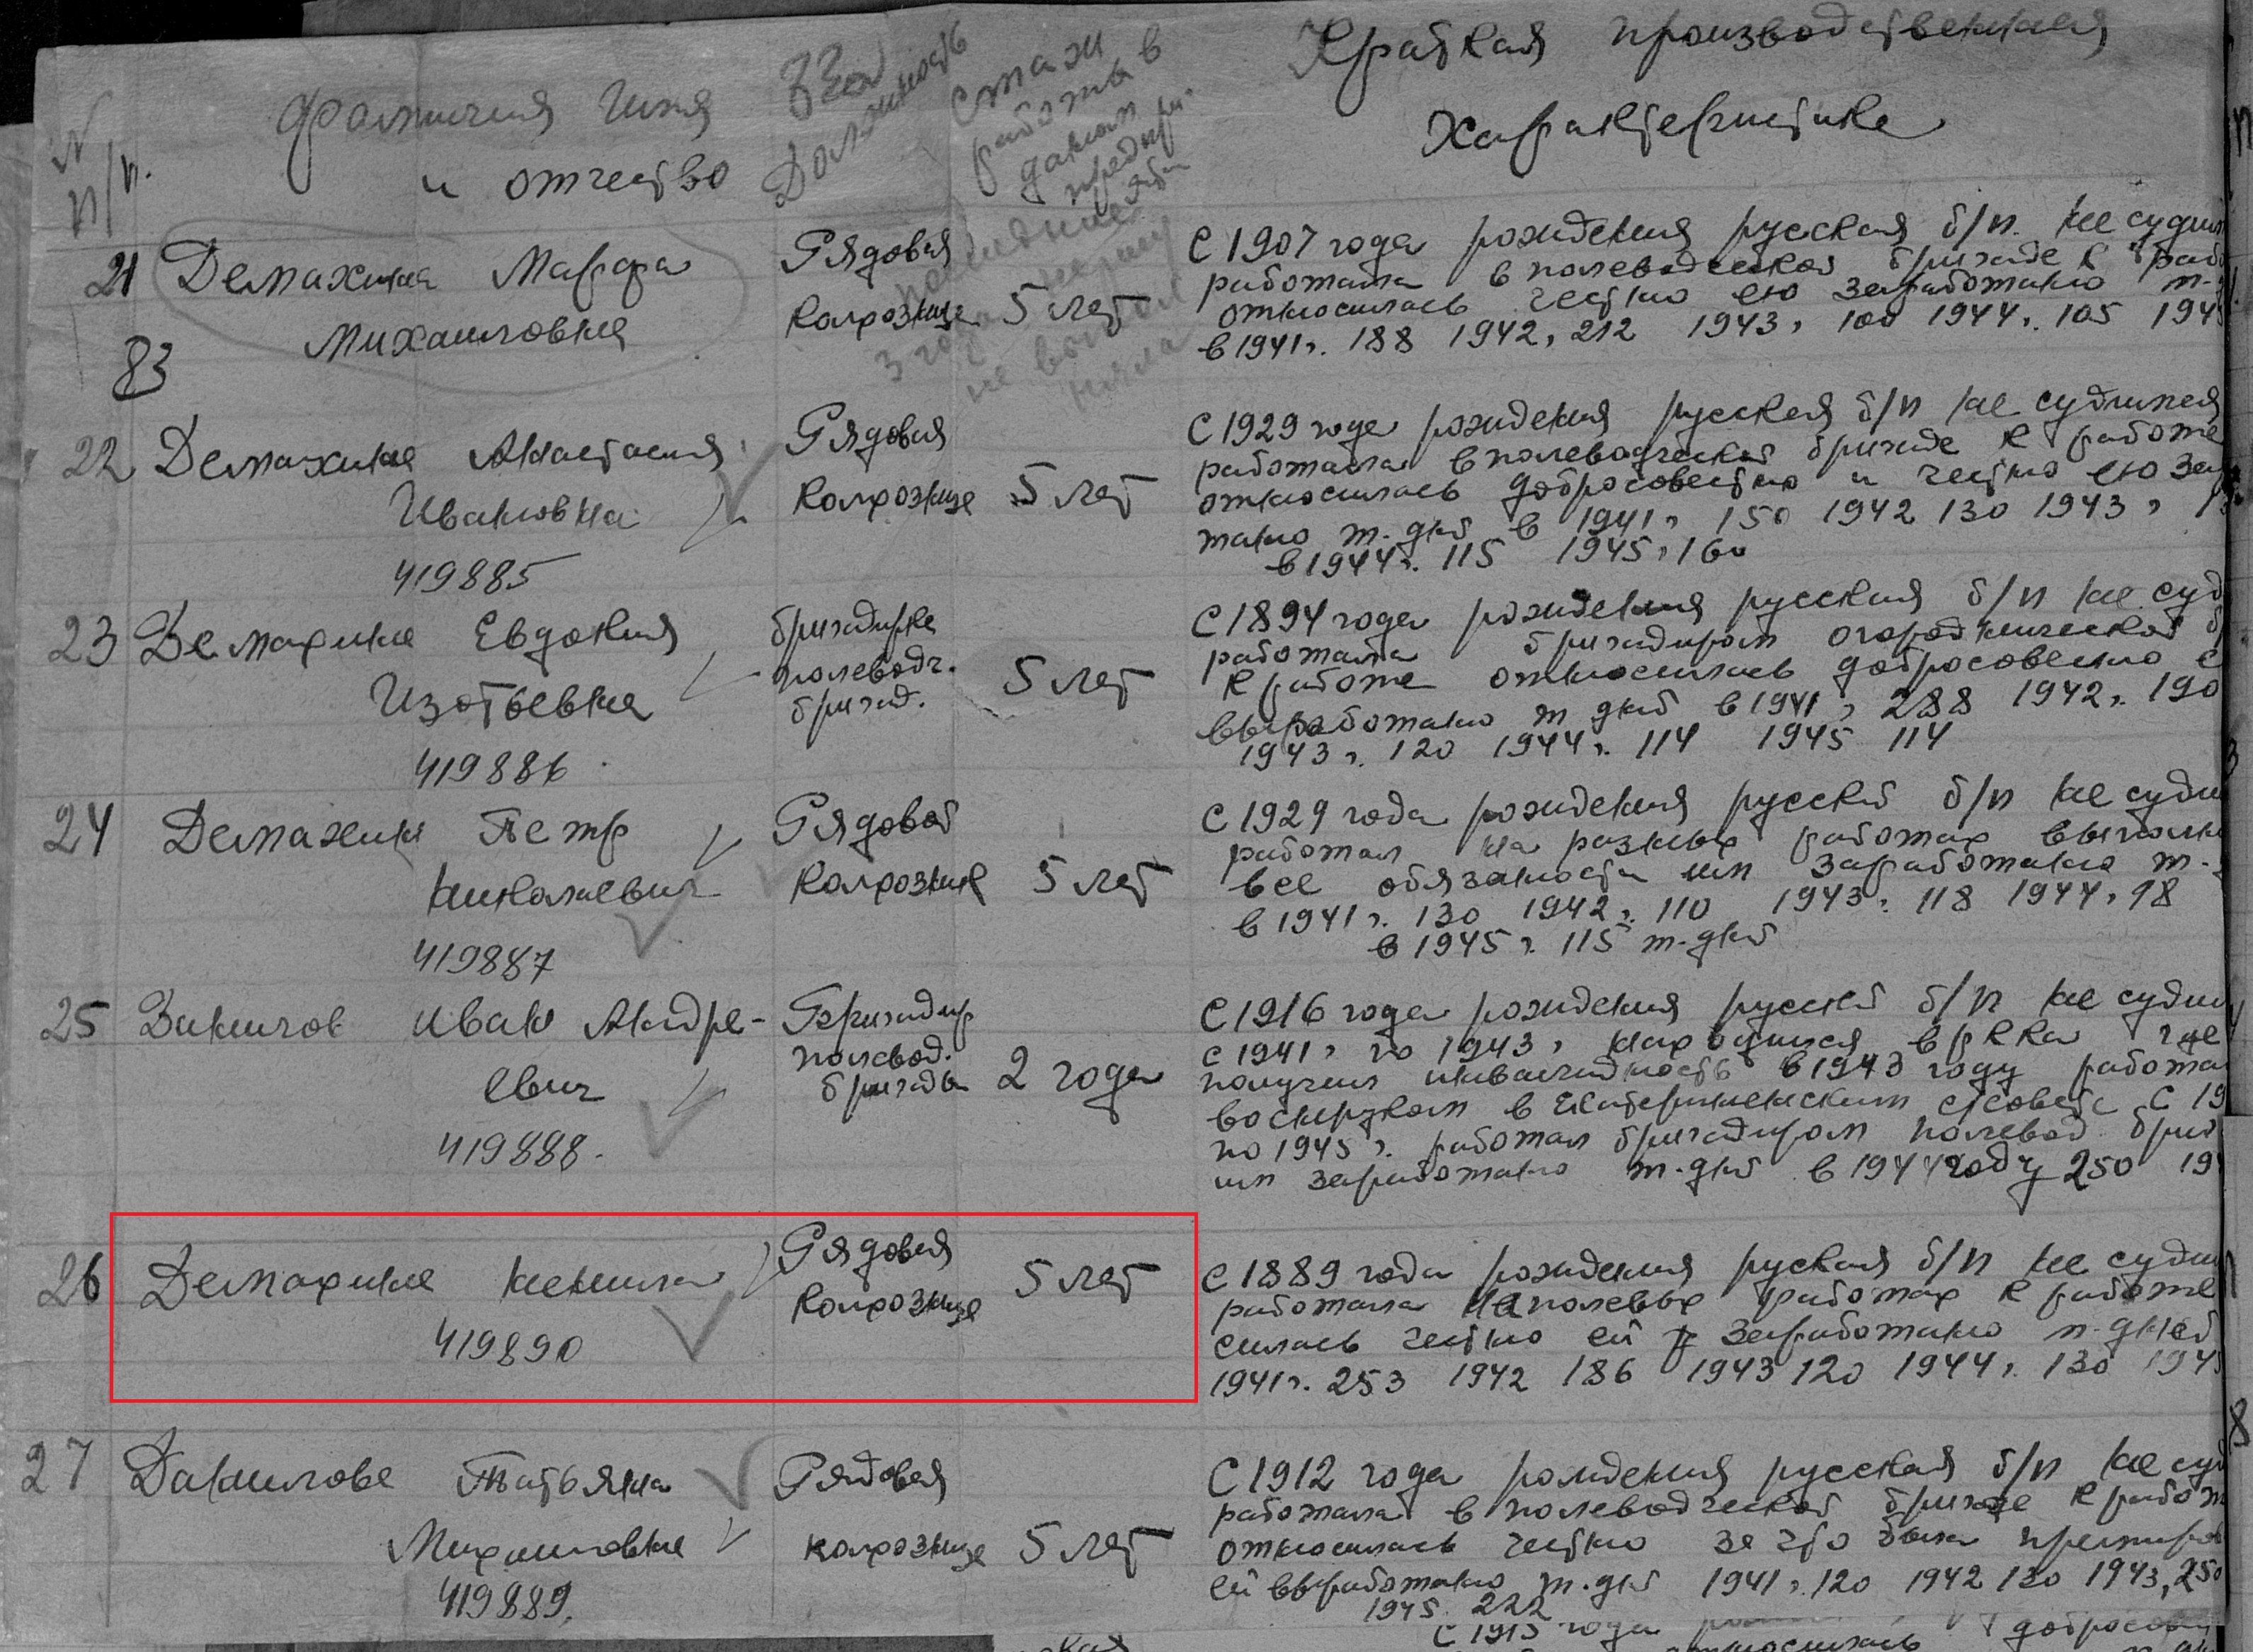 N п/п.
Фамилия Имя и отчество
Должность
Стаж работы в данном предпри-
Краткая производственная
Характеристика
21 Демахина Марфа
Михаиловна
83
Рядовая
Колхозница
5 лет
С 1907 года рождения русская б/п. не судим
работала в полеводческой бригаде к
относилась честно ею заработано т-
в 1941г. 188 1942г 212 1943г 100 1944г. 105 194
22 Демахина Анастасия
Ивановна
419885
Рядовая
Колхознице
5 лет
С 1929 года рождения русская б/п не судимая
работала в полеводческой бригаде к работе
относилась добросовестно и честно ею за
тано т. дней в 1941г 150 1942 130 1943г
в 1944г. 115 1945г 160
23 Демахина Евдокия
Изотьевна
419886
бригадирка
полеводч.
бригад.
5 лет
С 1894 года рождения русская б/п не суд
работала бригадиром огороднической
к работе относилась добросовесно
выработано т дней в 1941г 288 1942г. 190
1943г. 120 1944г. 114 1945 114
24 Демахин Петр
Николаевич
419887
Рядовой
Колхозник
5 лет
С 1929 года рождения русский б/п не суди
работал на разных работах выполнял
все обязаности им заработано т-
в 1941г. 130 1942г. 110 1943г. 118 1944г 98
в 1945г. 115 т-дней
25 Данилов Иван Андре-
евич
419888.
Бригадир
полевод.
бригады
2 года
С 1916 года рождения русский б/п не суди
с 1941г по 1943г находился в РККа где
получил инвалидность в 1943 году работа
военруком в сесовете С 19
по 1945г. работал бригадиром полевод. бриг
им заработано т-дней в 1944 году 250 19
26 Демахина Ненила
419890
Рядовая
Колхознице
5 лет
С 1889 года рождения руская б/п не суди
работала на полевых работах к работе
силась честно ей заработано т-дней
1941г. 253 1942 186 1943 120 1944г. 130 194
27 Данилова Татьяна
Михаиловна
419889.
Рядовая
колхознице
5 лет
С 1912 года рождения русская б/п не суд
работала в полеводческой бригаде к работ
относилась честно за что была премиров
ей выработано т. дней 1941г. 120 1942 130 1943, 250
1945. 222
С 1915 года